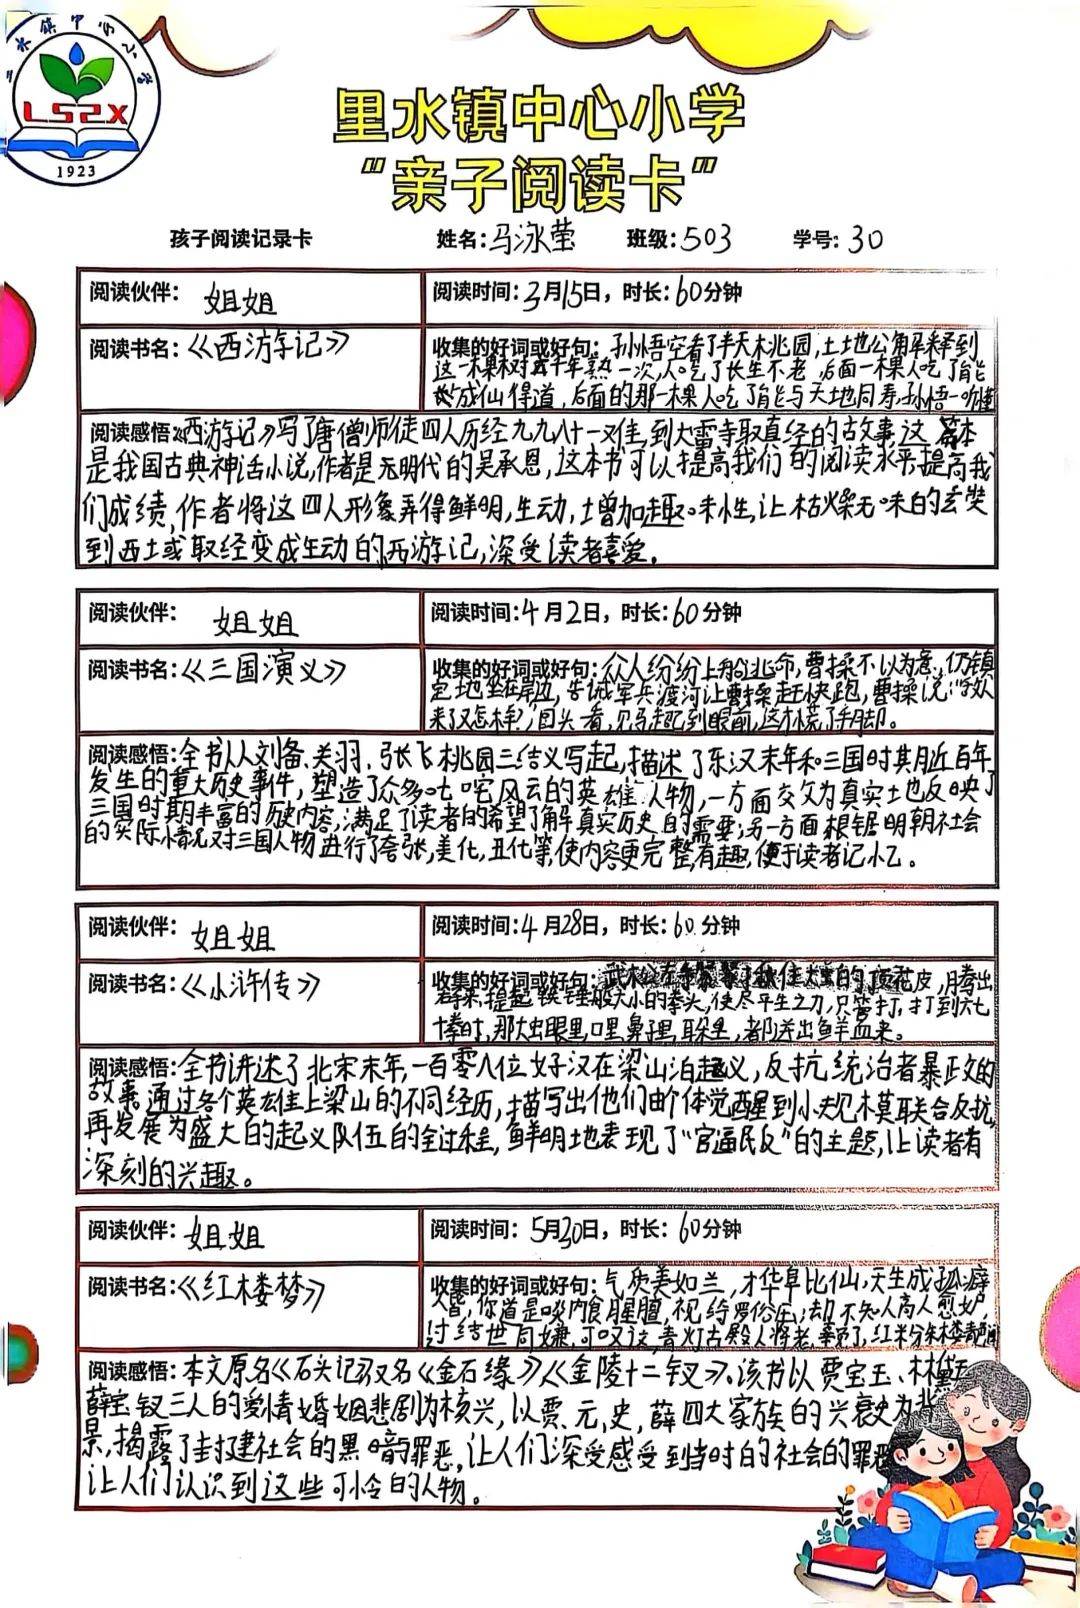 里水镇中心小学
LSZX
1923
里水镇中心小学
“亲子阅读卡”
孩子阅读记录卡 姓名:马泳莹 班级:503 学号:30
阅读伙伴: 姐姐 阅读时间:3月15日，时长:60分钟
阅读书名:《西游记》 收集的好词或好句:孙悟空看了半天桃园,土地公解释到
这一棵树 千年熟一次,人吃了长生不老 后面一棵人吃了能
成仙得道,后面的那一棵人吃了能与天地同寿,孙悟一听
阅读感悟《西游记》写了唐僧师徒四人历经九九八十一难,到大雷寺取真经的故事,这 本
是我国古典神话小说,作者是元明代的吴承恩,这本书可以提高我们的阅读水平,提高我
们成绩,作者将这四人形象弄得鲜明,生动,增加趣味性,让枯燥无味的玄奘
到西土或取经变成生动的西游记,深受读者喜爱。
阅读伙伴: 姐姐 阅读时间:4月2日，时长:60分钟
阅读书名:《三国演义》 收集的好词或好句:众人纷纷上船逃命,曹操不以为意,仍镇
定地坐在岸边,告诫军兵渡河让曹操赶快跑,曹操说:“敌人
来了又怎样”,回头看,见马超已到眼前,这才慌了手脚。
阅读感悟:全书从刘备、关羽、张飞桃园三结义写起,描述了东汉末年和三国时其月近百年
发生的重大历史事件,塑造了众多叱咤风云的英雄人物,一方面 为真实地反映了
三国时期丰富的历史内容,满足了读者的希望了解真实历史的需要;另一方面根锯明朝社会
的实际情况对三国人物进行了夸张,美化,丑化等,使内容更完整有趣,便于读者记忆。
阅读伙伴: 姐姐 阅读时间:4月28日，时长:60分钟
阅读书名:《水浒传》 收集的好词或好句: 顶花皮,腾出
右手来,提起铁锤般大小的拳头,使尽平生之力,只管打,打到六七
十拳时,那大虫眼里,口里,鼻子里,耳朵里,都迸出鲜血来。
阅读感悟:全书讲述了北宋末年,一百零八位好汉在梁山泊起义,反抗统治者暴政的
故事,通过各个英雄上梁山的不同经历,描写出他们由个体觉醒到小规模联合反抗,
再发展为盛大的起义队伍的全过程,鲜明地表现了“官逼民反”的主题,让读者有
深刻的兴趣。
阅读伙伴: 姐姐 阅读时间: 5月30日，时长:60分钟
阅读书名:《红楼梦》 收集的好词或好句:气质美如兰,才华阜比仙,天生成孤癖
人皆,你道是啖肉食腥膻,视绮罗俗厌;却不知人高人愈妒,
过洁世同嫌,可叹这,青灯古殿人将老,辜负了,红粉朱楼春色阑
阅读感悟:本文原名《石头记》又名《金石缘》《金陵十二钗》。该书以贾宝玉、林黛玉
薛宝钗三人的爱情婚姻悲剧为核兴,以贾,元,史,薛四大家族的兴衰史为背
景,揭露了封建社会的黑暗罪恶,让人们深受感受到当时的社会的罪恶
让人们认识到这些可怜的人物。